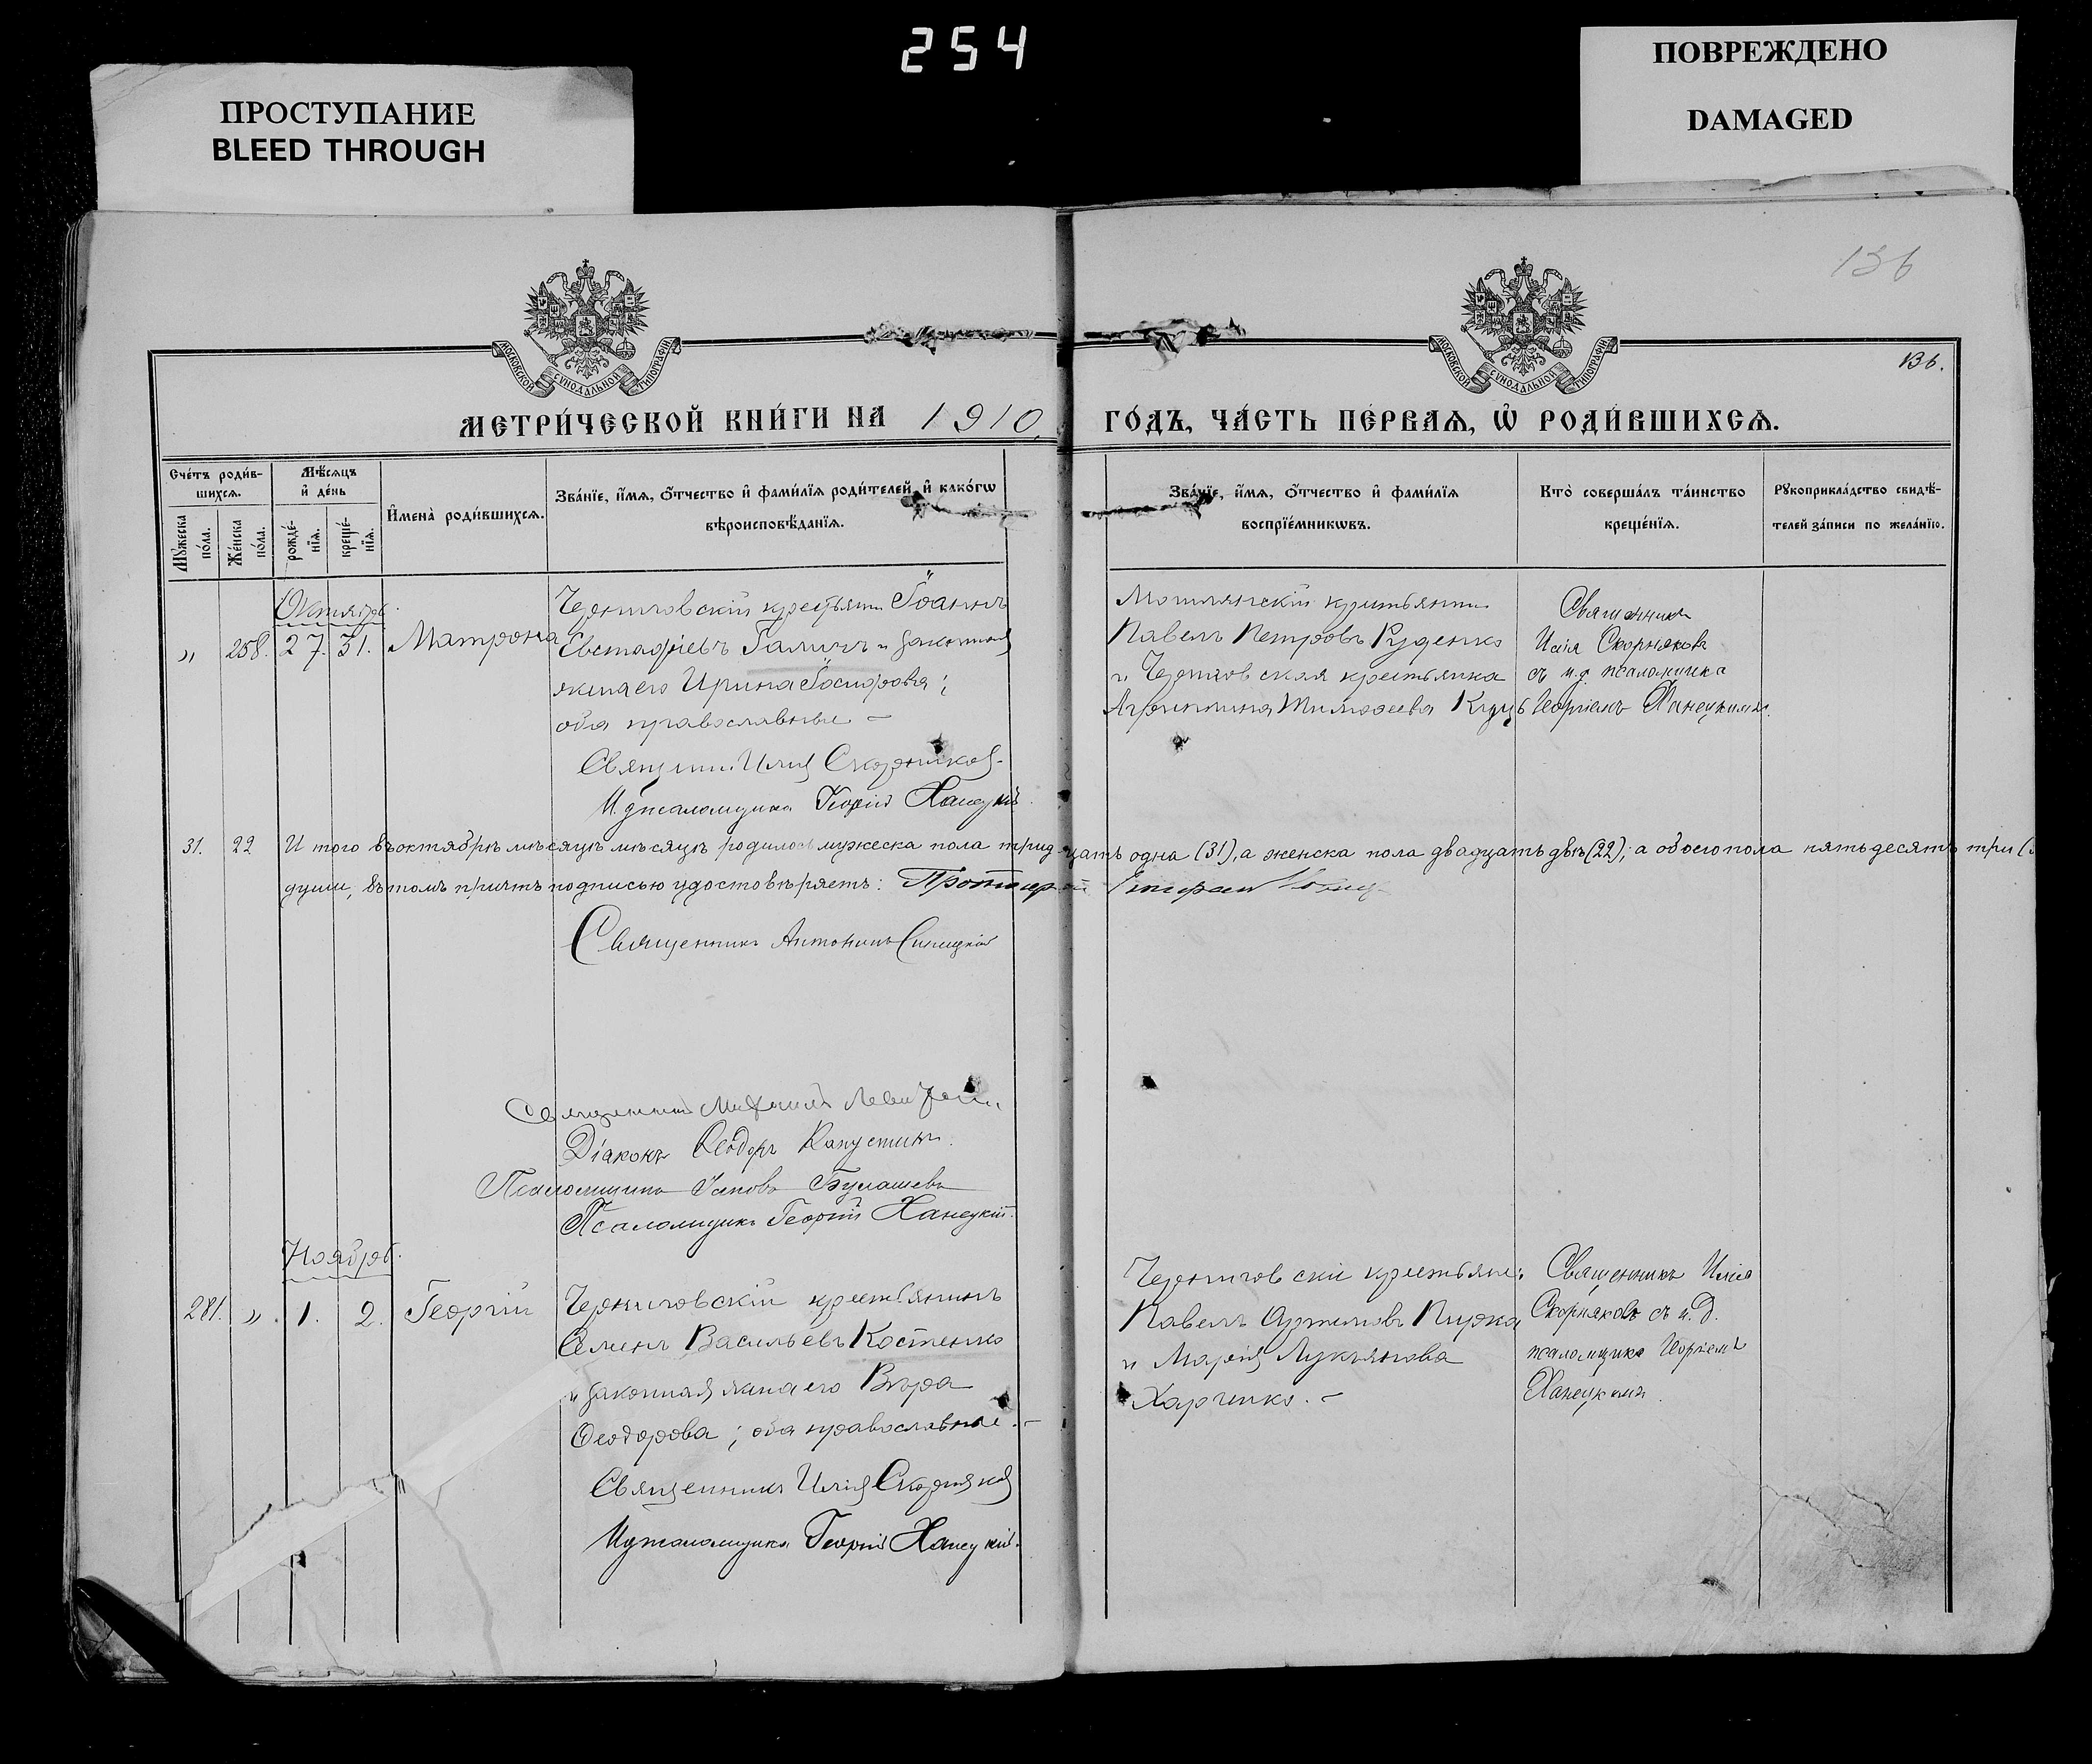 254
ПРОСТУПАНИЕ
BLEED THROUGH
ПОВРЕЖДЕНО
DAMAGED
136
136.
МОСКОВСКОЙ СѴНОДАЛЬНОЙ ТИПОГРАФІИ
МОСКОВСКОЙ СѴНОДАЛЬНОЙ ТИПОГРАФІИ
МЕТРИ́ЧЕСКОЙ КНИ́ГИ НА 1910 ГО́ДЪ, ЧА́СТЬ ПЕ́РВАѦ, Ѡ҆ РОДИ́ВШИХСѦ.
Сче́тъ роди́в-
шихсѧ.
Мꙋ́жеска по́ла.
Же́нска по́ла.
Мѣ́сѧцъ
и҆ де́нь
рожде́-
нїѧ.
креще́-
нїѧ.
И҆мена̀ роди́вшихсѧ.
Зва́нїе, и҆́мѧ, ѻ҆́тчество и҆ фами́лїѧ роди́телей, и҆ како́гѡ
вѣроисповѣ́данїѧ.
Зва́нїе, и҆́мѧ, ѻ҆́тчество и҆ фами́лїѧ
воспрїе́мникѡвъ.
Кто̀ соверша́лъ та́инство
креще́нїѧ.
Рꙋкоприкла́дство свидѣ́-
телей за́писи по жела́нїю.
Октябрь.
„ 258. 27. 31. Матрона
Черниговскій крестьянинъ Іоаннъ
Евстафіевъ Галичъ и законная
жена его Ирина Іосифовна;
оба православные –
Священникъ Илія Скорняковъ
И. д. псаломщика Георгій Ханецкій.
крестьянинъ
Павелъ Петровъ Руденко
и Черниговская крестьянка
Агриппина Тимофеева
Священникъ
Илія Скорняковъ
съ и. д. псаломщика
Георгіемъ Ханецкимъ.
31. 22 И того въ октябрѣ мѣсяцѣ мѣсяцѣ родилось мужеска пола тридцать одна (31), а женска пола двадцать двѣ (22); а обоего пола пятьдесятъ три (
души, въ томъ причтъ подписью удостовѣряетъ: Протоіерей
Священникъ Антонинъ Синицкій
Священникъ
Діаконъ Ѳеодоръ Капустинъ.
Псаломщикъ Іаковъ Булашевъ
Псаломщикъ Георгій Ханецкій.
Ноябрь.
281. „. 1. 2. Георгій
Черниговскій крестьянинъ
Семенъ Васильевъ Костенко
и законная жена его Вѣра
Ѳеодорова; оба православные. –
Священникъ Илія Скорняковъ
И. д. псаломщика Георгій Ханецкій.
Черниговскіе крестьяне:
Павелъ Артемовъ Пирка
и Марія Лукьянова
Харченко. –
Священникъ Илія
Скорняковъ съ и. д.
псаломщика Георгіемъ
Ханецкимъ.